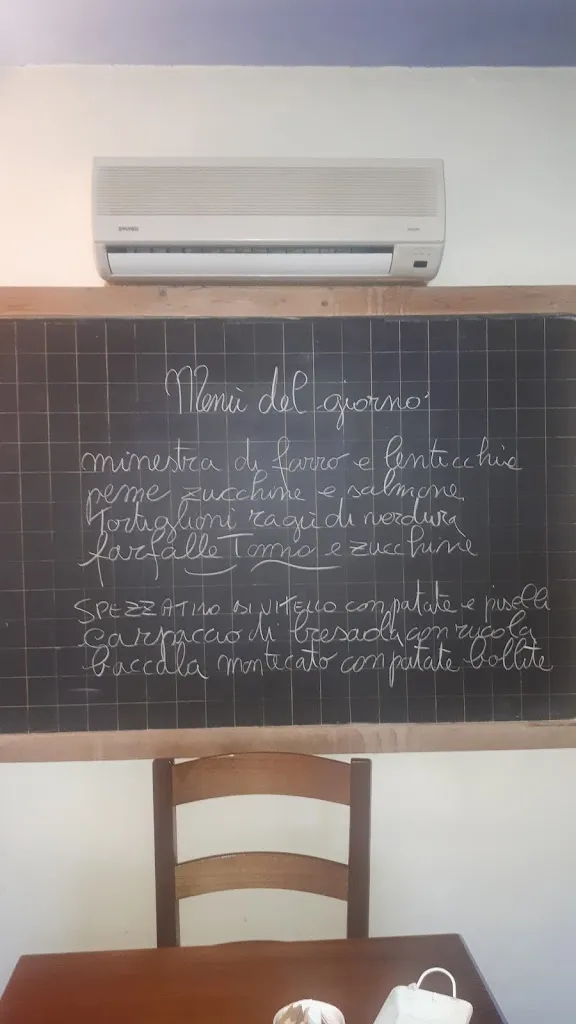 Menù del giorno
minestra di farro e lenticchie
penne zucchine e salmone
Tortiglioni ragù di verdura
farfalle Tonno e zucchine
SPEZZATINO DI VITELLO con patate e piselli
carpaccio di bresaola con rucola
baccala montecato con patate bollite